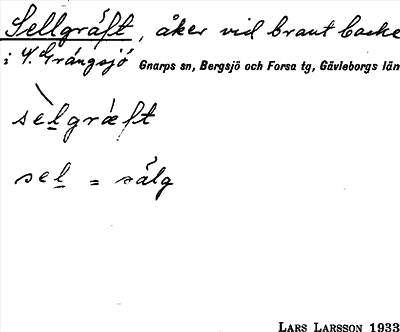 Sellgräft, åker vid brant backe
i Y. Grängsjö Gnarps sn, Bergsjö och Forsa tg, Gävleborgs län
sèlgræft
sel = sälg
LARS LARSSON 1933